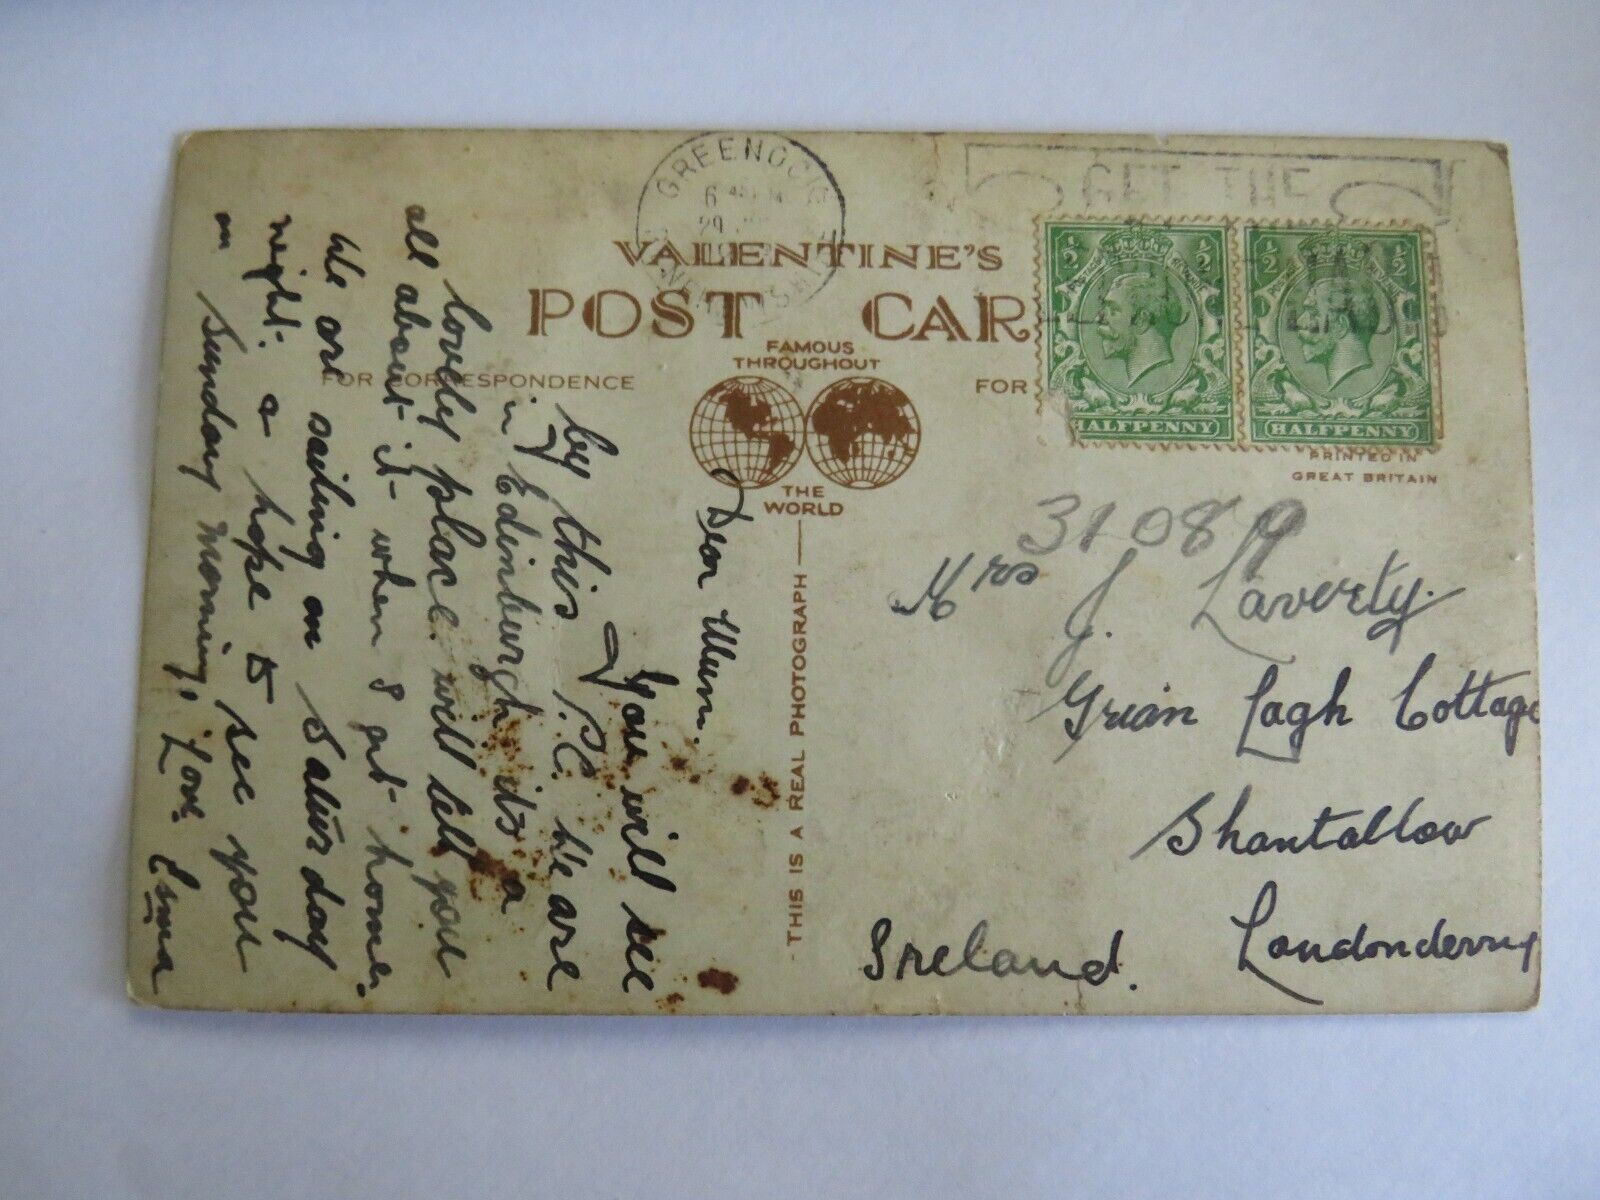 GREENOCK
6
29
GET THE
VALENTINE'S
POST CAR
FAMOUS
THROUGHOUT
THE
WORLD
FOR CORRESPONDENCE
FOR
THIS IS A REAL PHOTOGRAPH
½ ½
HALFPENNY
½ ½
HALFPENNY
PRINTED IN
GREAT BRITAIN
31089
Mrs J. Laverty.
Grian Lagh Cottage
Shantallow
Londonderry
Ireland.
Dear Mum.
You will see
by this P.C. We are
in Edinburgh its a
lovely place. will tell you
all about it when I get home.
We are sailing on Saturday
night. a hope to see you
on Sunday Morning, Love. Esma